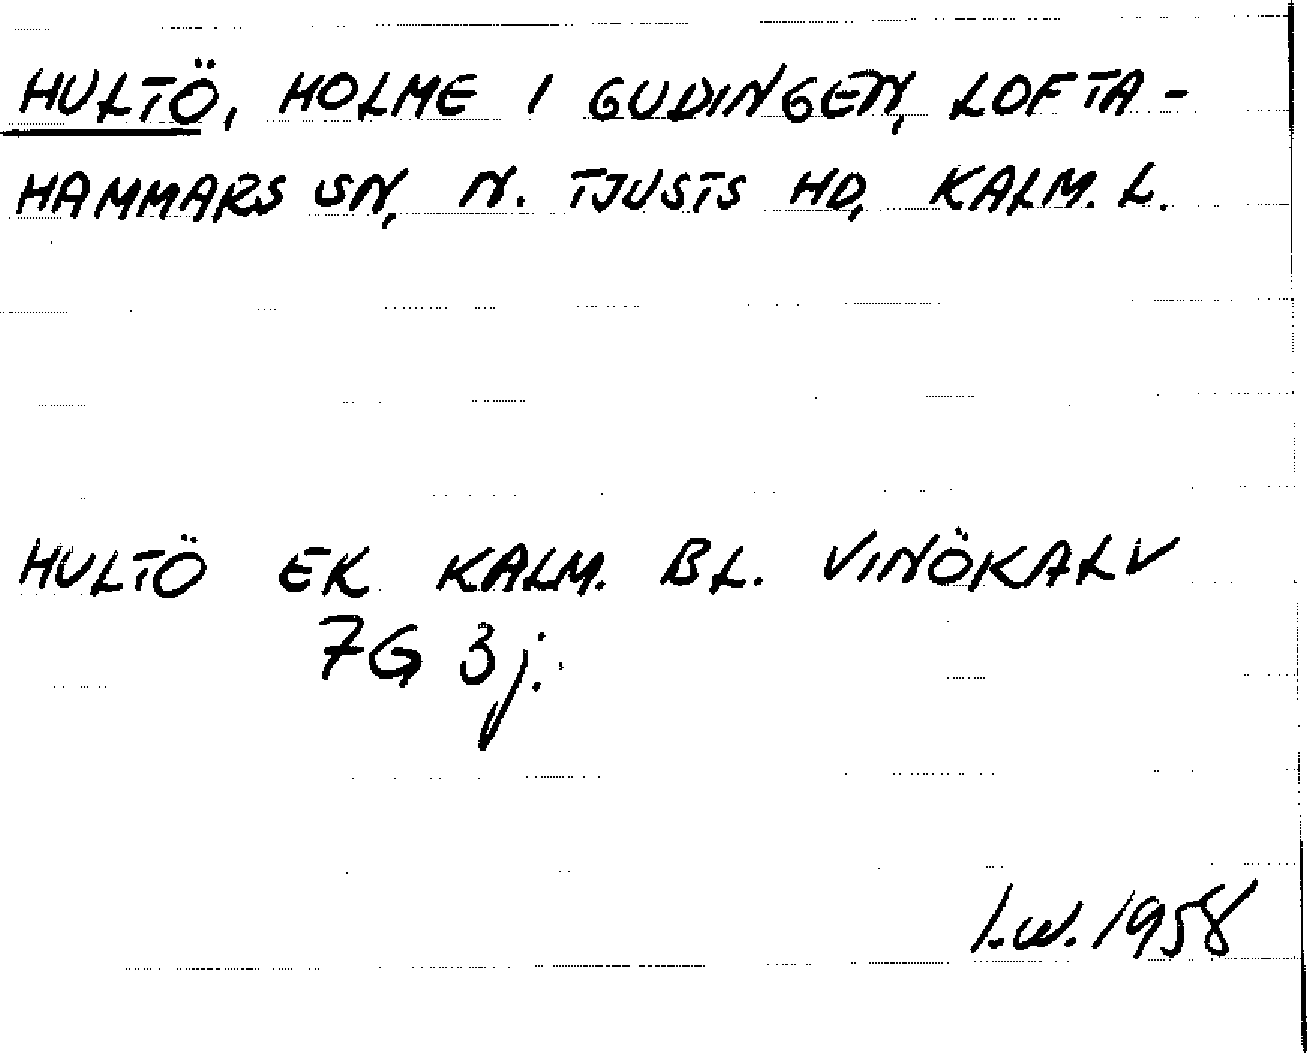 HULTÖ, HOLME I GUDINGEN, LOFTA-
HAMMARS SN, N. TJUSTS HD, KALM. L.
HULTÖ EK KALM. BL. VINÖKALV
7G 3j.
I.W. 1958